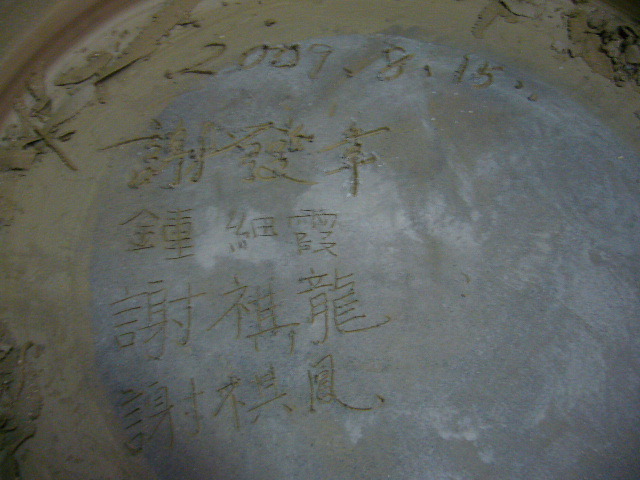 2009.8.15..
謝發幸
鍾細霞
謝祺龍
謝祺鳳